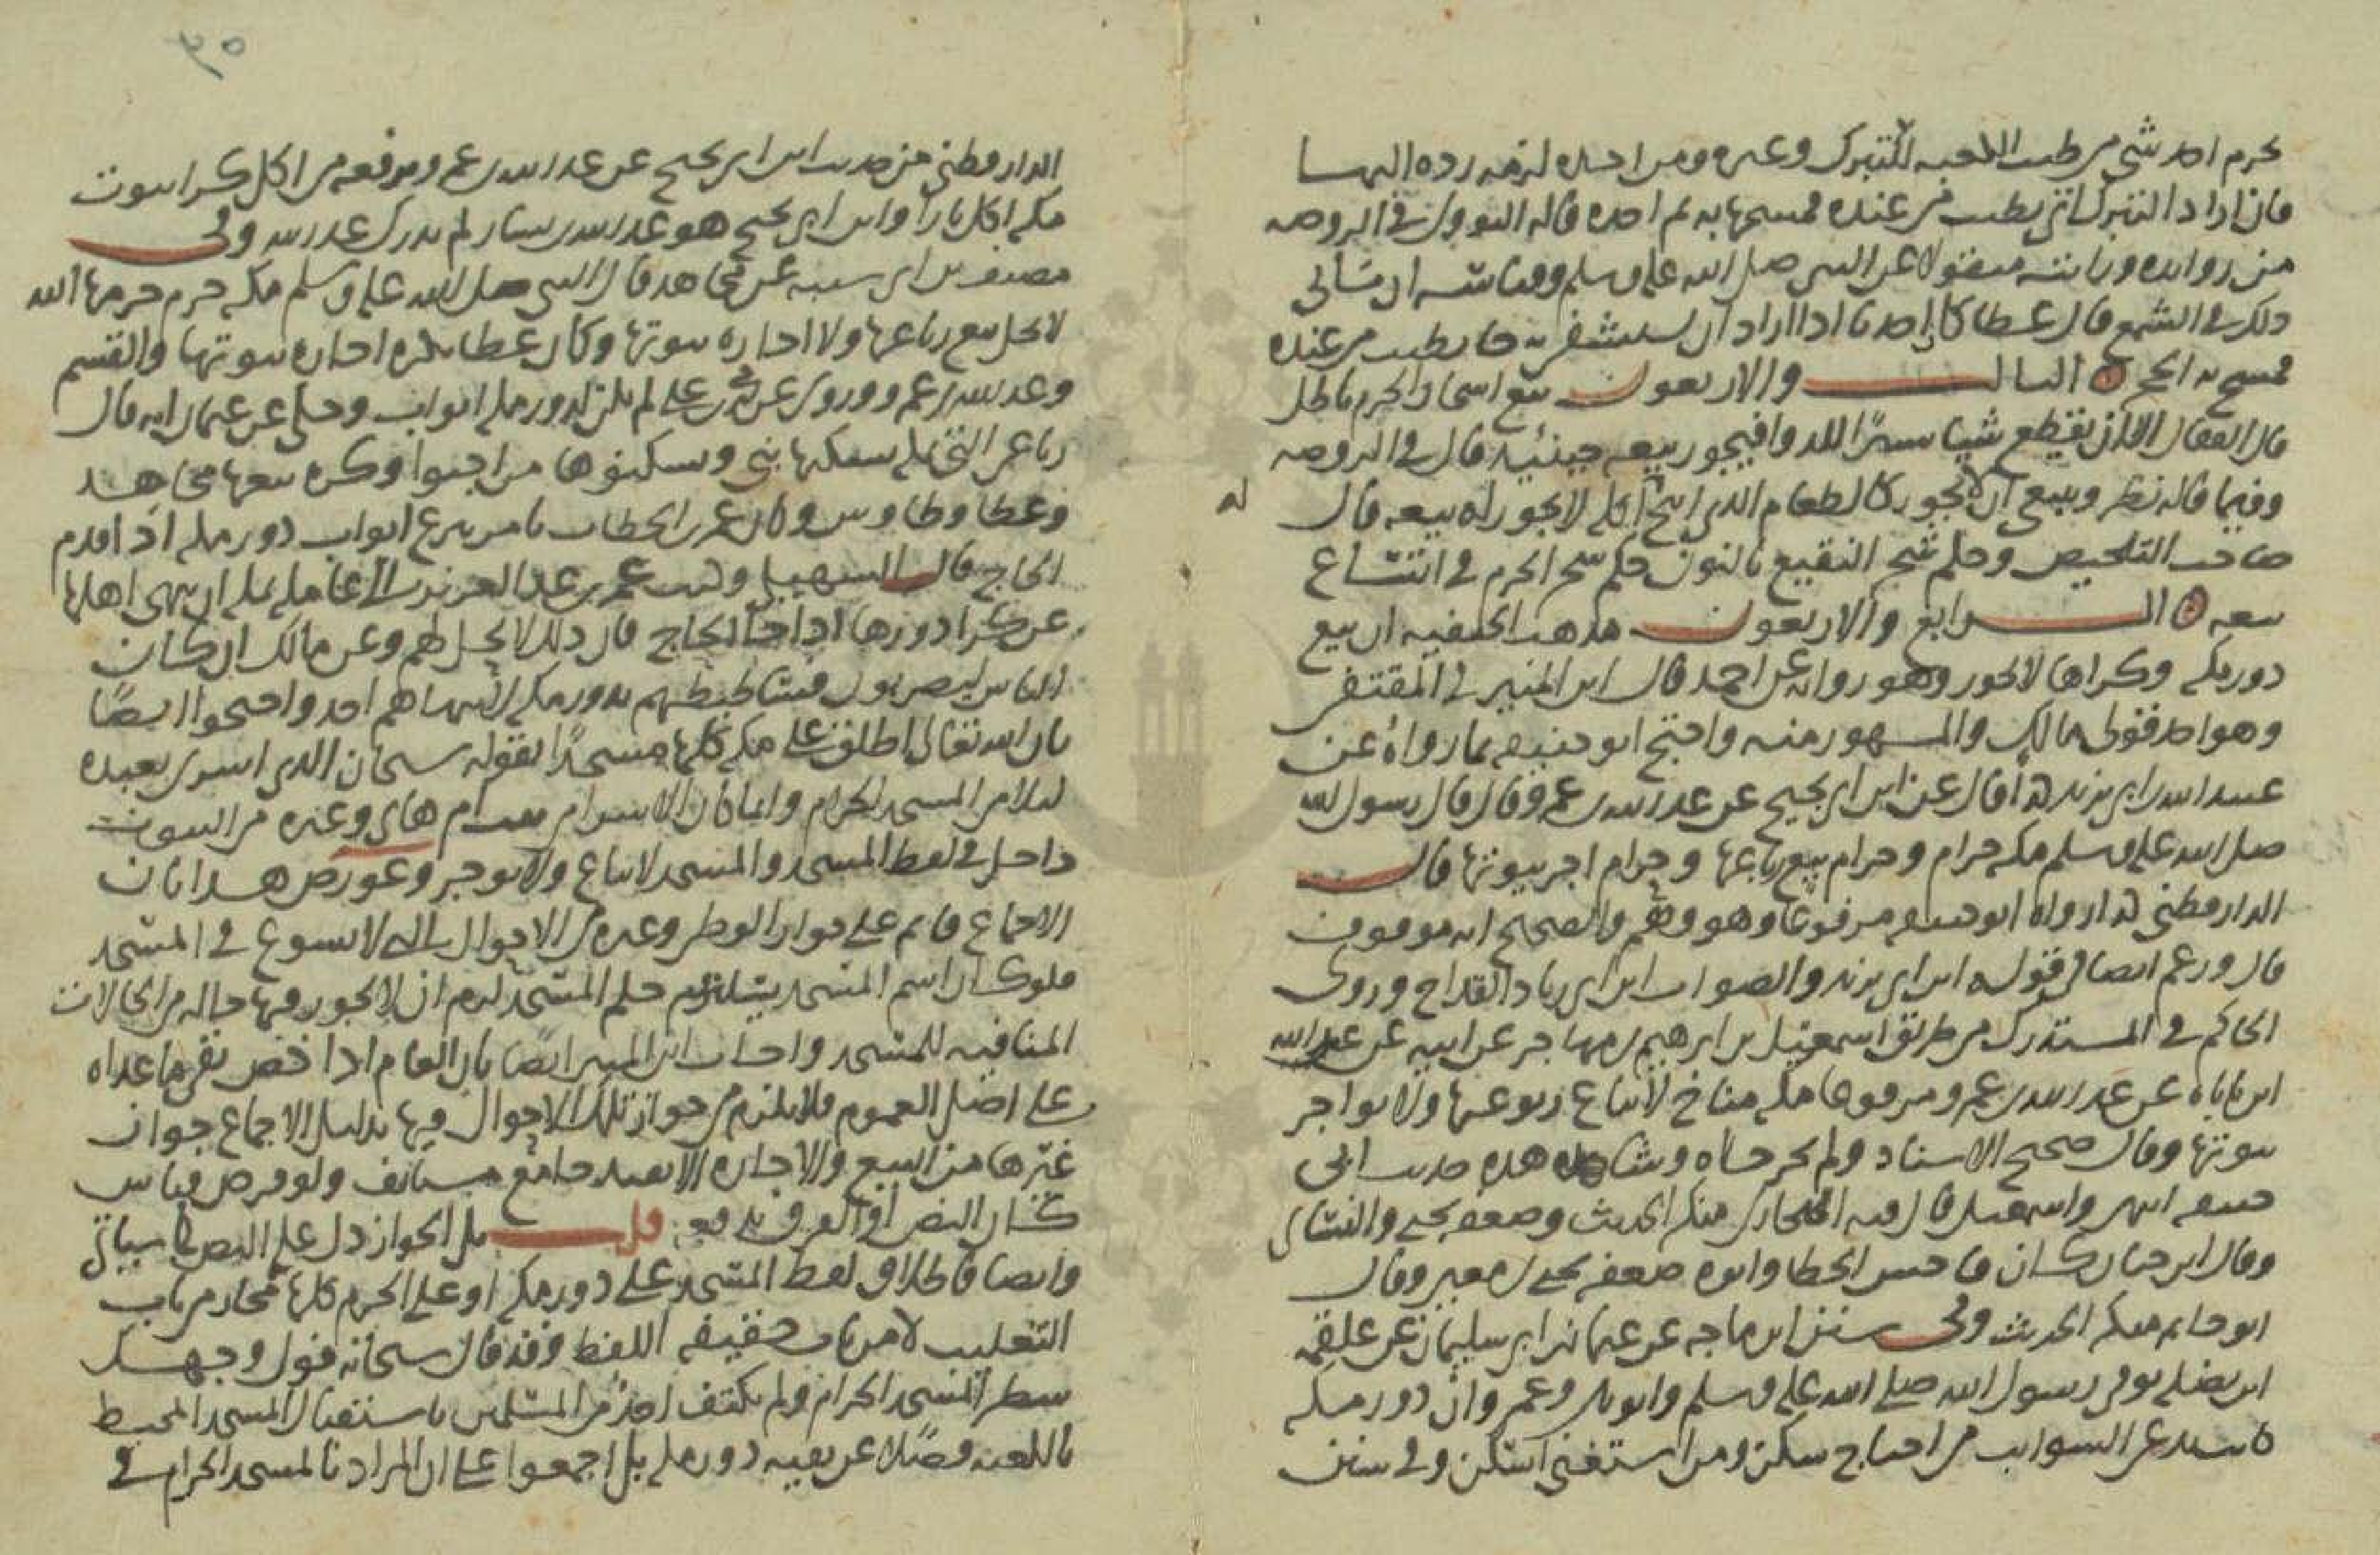 يحرم اخذ شي من طيب الكعبة للتبرك وغيره ومن اخذه لزمه رده اليها
فان اراد التبرك اتى بطيب من عنده فمسحها به ثم اخذه قاله النووي في الروضه
من زوائده ورايته منقولا عن النبي صلى الله عليه وسلم وقياسه ان ياتي
ذلك في الشمع قال عطا كان احدنا اذا اراد ان يستشفي به جا بطيب من عنده
فمسح به الحجر الثالث والاربعون بيع اشجار الحرم باطل
قال القفال الا ان يقطع شيا يسيرا للدوا فيجوز بيعه حينئذ قال في الروضه
وفيما قاله نظر وينبغي ان لا يجوز كالطعام الذي ابيح اكله لا يجوز له بيعه قال
صاحب التلخيص وحكم شجر النقيع بالنون حكم شجر الحرم في امتناع
بيعه الرابع والاربعون مذهب الحنفيه ان بيع
دور مكه وكراها لا يجوز وهو روايه عن احمد قال ابن المنير في المقتفى
وهو احد قولي مالك والمشهور منه واحتج ابو حنيفه بما رواه عن
عبيد الله بن ابي يزيد كذا قال عن ابن ابي نجيح عن عبد الله بن عمرو قال قال رسول الله
صلى الله عليه وسلم مكه حرام وحرام بيع رباعها وحرام اجر بيوتها قال
الدارقطني كذا رواه ابو حنيفه مرفوعا وهو وهم والصحيح انه موقوف
قال ووهم ايضا في قوله ابن ابي يزيد والصواب ابن ابي زياد القداح وروى
الحاكم في المستدرك من طريق اسمعيل بن ابرهيم بن مهاجر عن ابيه عن عبد الله
ابن باباه عن عبد الله بن عمرو مرفوعا مكه مناخ لا تباع ربوعها ولا تواجر
بيوتها وقال صحيح الاسناد ولم يخرجاه وشاهده حديث ابي
حنيفه انتهى واسمعيل قال فيه البخاري منكر الحديث وضعفه يحيى والنسائي
وقال ابن حبان كان فاحش الخطا وابوه ضعفه يحيى بن معين وقال
ابو حاتم منكر الحديث وفي سنن ابن ماجه عن عثمان بن ابي سليمان عن علقمه
ابن نضله توفي رسول الله صلى الله عليه وسلم وابو بكر وعمر وان دور مكه
كانت تدعى السوايب من احتاج سكن ومن استغنى اسكن وفي سنن
الدارقطني من حديث ابن ابي نجيح عن عبد الله بن عمرو يرفعه من اكل كرا بيوت
مكه اكل نارا وابن ابي نجيح هو عبد الله بن يسار لم يدرك عبد الله وفي
مصنف بن ابي شيبه عن مجاهد قال النبي صلى الله عليه وسلم مكه حرم حرمها الله
لا يحل بيع رباعها ولا اجاره بيوتها وكان عطا يكره اجاره بيوتها والقسم
وعبد الله بن عمرو وروي عن محمد بن علي لم يكن لدور مكه ابواب وحكي عن عثمان انه قال
رباعي التي بمكه يسكنها بني ويسكنوها من احبوا وكره بيعها مجاهد
وعطا وطاوس وكان عمر بن الخطاب يامر بنزع ابواب دور مكه اذا قدم
الحاج قال السهيلي وكتب عمر بن عبد العزيز الى عامله بمكه ان ينهى اهلها
عن كرا دورها اذا جا الحاج قال ذلك لا يحل لهم وعن مالك ان كان
الناس ليضربون فساطيطهم بدور مكه لا ينهاهم احد واحتجوا ايضا
بان الله تعالى اطلق على مكه كلها مسجدا بقوله سبحان الذي اسرى بعبده
ليلا من المسجد الحرام وانما كان الاسرا من بيت ام هاني وغيره من البيوت
داخل في لفظ المسجد والمسجد لا يباع ولا يوجر وعورض هذا بان
الاجماع قايم على جواز الوطي وغيره من الاحوال التي لا تسوغ في المسجد
فلو كان اسم المسجد يستلزم حكم المسجد لزم ان لا يجوز فيها حاله من الحالات
المنافيه للمسجد واجاب ابن المنير ايضا بان العام اذا خص بقي ما عداه
على اصل العموم فلا يلزم من جواز تلك الاحوال فيها بدليل الاجماع جواز
غيرها من البيع والاجاره الا بقيد جامع مستانف ولو فرض قياس
كان النص اوالعرف يدفعه قلت بل الجواز دل عليه النص كما سياتي
وايضا فاطلاق لفظ المسجد على دور مكه او على الحرم كلها مجاز من باب
التغليب لا من باب حقيقه اللفظ وقد قال سبحانه فول وجهك
شطر المسجد الحرام ولم يكتف احد من المسلمين باستقبال المسجد المحيط
بالكعبه فضلا عن بقيه دور مكه بل اجمعوا على ان المراد بالمسجد الحرام في